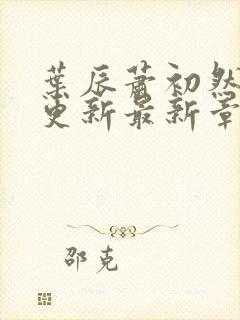 葉辰蕭初然
更新最新章
邵克